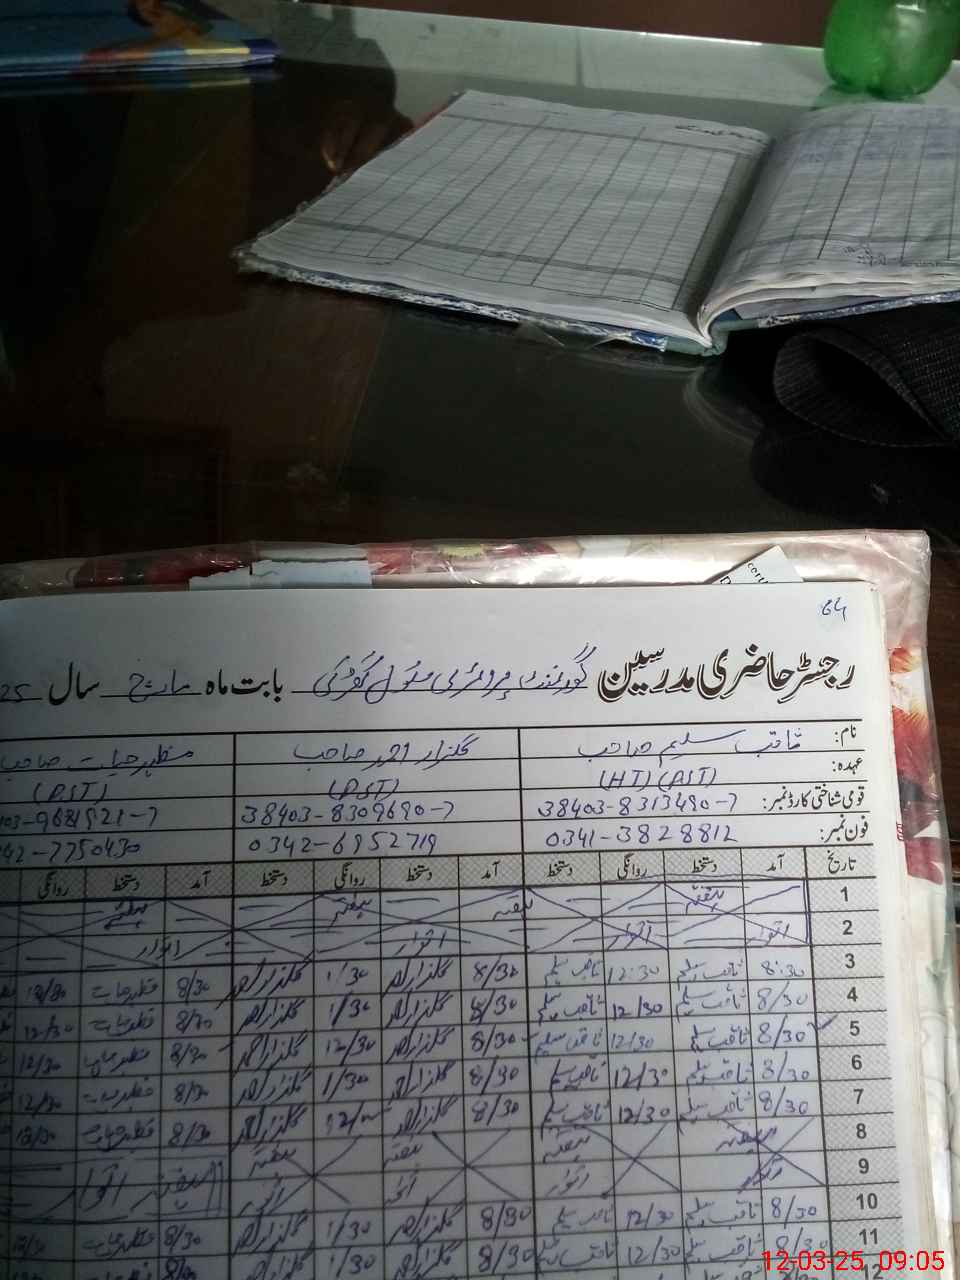 64
رجسٹر حاضری مدرسین گورنمنٹ پرائمری سکول بابت ماہ مارچ سال 25
نام: ثاقب سلیم صاحب گلزار احمد صاحب مظہر حیات صاحب
عہدہ: (HT) (PST) (PST) (PST)
قومی شناختی کارڈ نمبر: 38403-8313490-7 38403-8309690-7 03-9681921-7
فون نمبر: 0341-3828812 0342-6952719 42-7750430
تاریخ آمد دستخط روانگی دستخط آمد دستخط روانگی دستخط آمد دستخط روانگی
1 ہفتہ ہفتہ ہفتہ ہفتہ
2 اتوار اتوار اتوار اتوار
3 8:30 ثاقب سلیم 12:30 ثاقب سلیم 8/30 گلزار احمد 1/30 گلزار احمد 8/30 مظہر حیات 12/30
4 8/30 ثاقب سلیم 12/30 ثاقب سلیم 8/30 گلزار احمد 1/30 گلزار احمد 8/30 مظہر حیات 12/30
5 8/30 ثاقب سلیم 12/30 ثاقب سلیم 8/30 گلزار احمد 12/30 گلزار احمد 8/30 مظہر حیات 12/30
6 8/30 ثاقب سلیم 12/30 ثاقب سلیم 8/30 گلزار احمد 1/30 گلزار احمد 8/30 مظہر حیات 12/30
7 8/30 ثاقب سلیم 12/30 ثاقب سلیم 8/30 گلزار احمد گلزار احمد 8/30 مظہر حیات 12/30
8 ہفتہ ہفتہ ہفتہ ہفتہ ہفتہ اتوار
9 اتوار اتوار اتوار اتوار
10 8/30 ثاقب سلیم 12/30 ثاقب سلیم 8/30 گلزار احمد 1/30 گلزار احمد 8/30 مظہر حیات 12/30
11 8/30 ثاقب سلیم 12/30 ثاقب سلیم 8/30 گلزار احمد 1/30 گلزار احمد
12
12-03-25, 09:05